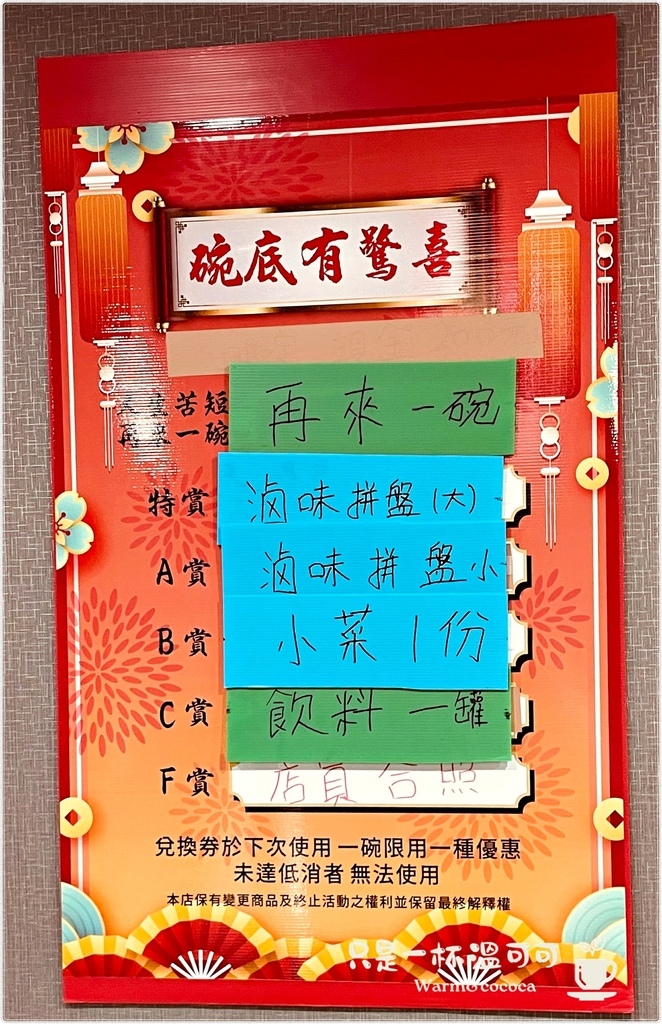 碗底有驚喜
苦短 再來一碗
一碗
特賞 滷味拼盤(大)
A賞 滷味拼盤小
B賞 小菜1份
C賞 飲料一罐
F賞 店員合照
兌換券於下次使用 一碗限用一種優惠
未達低消者 無法使用
本店保有變更商品及終止活動之權利並保留最終解釋權
只是一杯溫可可
Warm0'cococa